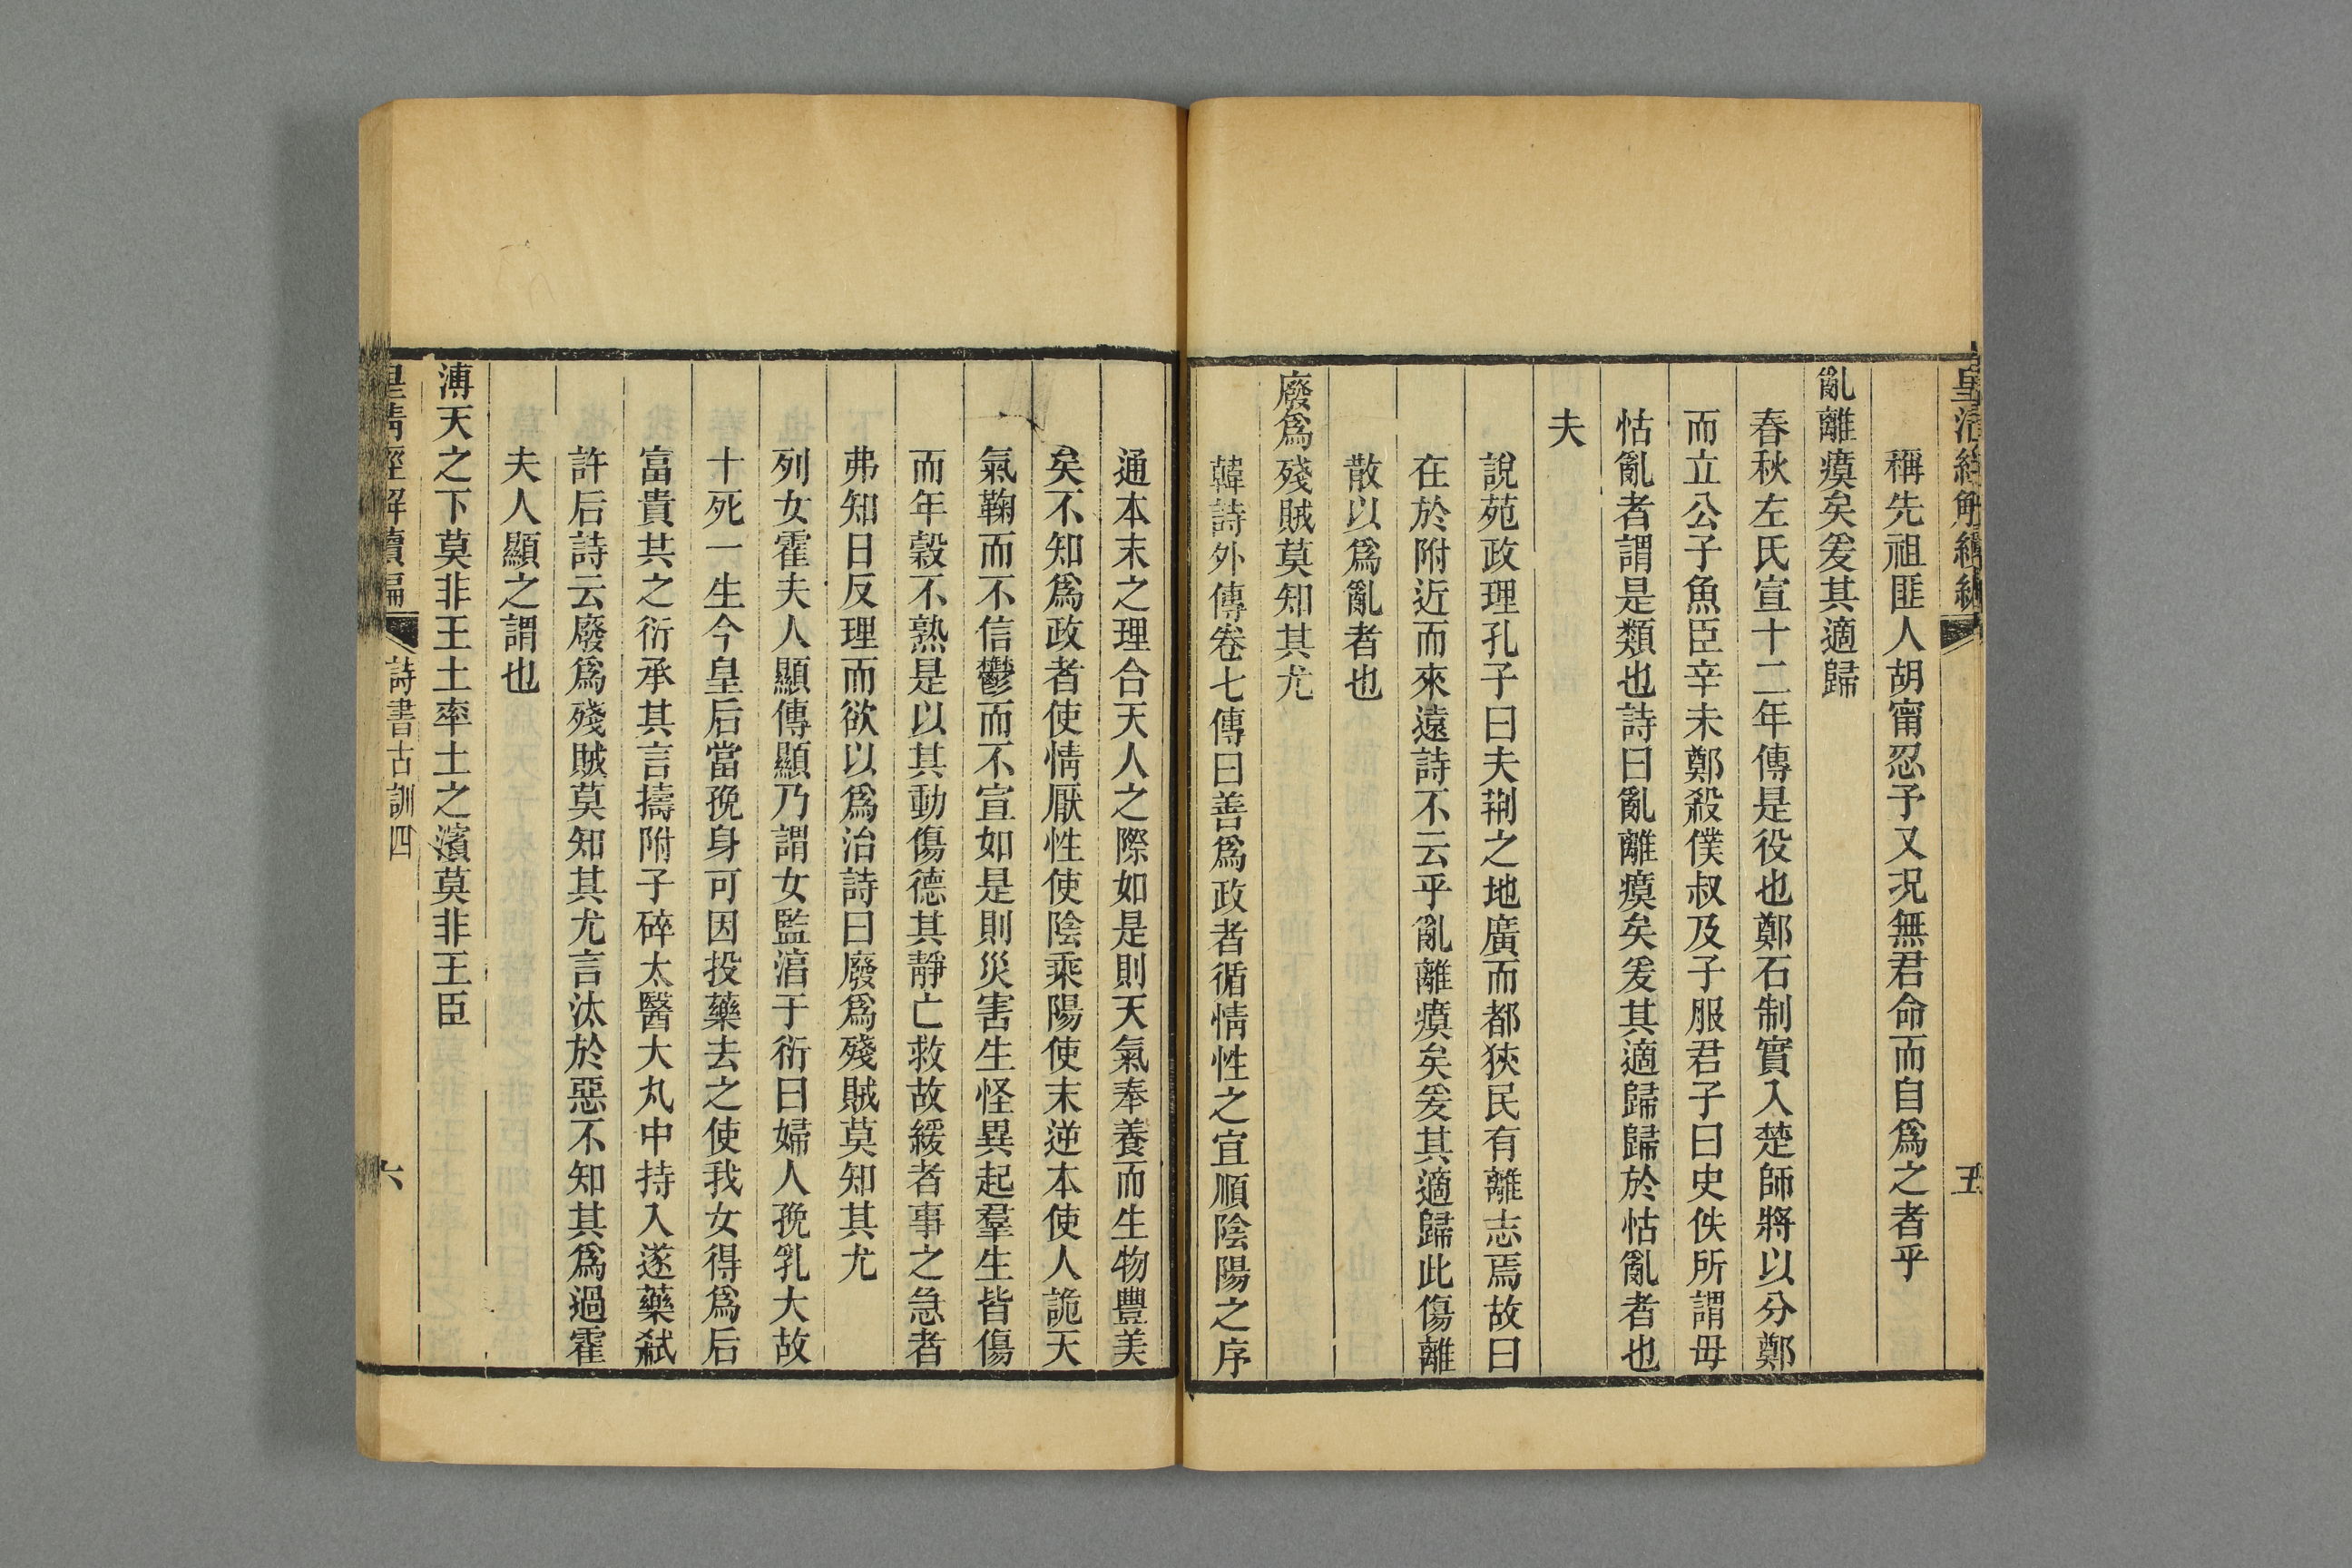 皇清經解續編
五
稱先祖匪人胡甯忍予又况無君命而自爲之者乎
亂離瘼矣爰其適歸
春秋左氏宣十二年傳是役也鄭石制實入楚師將以分鄭
而立公子魚臣辛未鄭殺僕叔及子服君子曰史佚所謂毋
怙亂者謂是類也詩曰亂離瘼矣爰其適歸歸於怙亂者也
夫
說苑政理孔子曰夫荆之地廣而都狹民有離志焉故曰
在於附近而來遠詩不云乎亂離瘼矣爰其適歸此傷離
散以爲亂者也
廢爲殘賊莫知其尤
韓詩外傳卷七傳曰善爲政者循情性之宜順陰陽之序
通本末之理合天人之際如是則天氣奉養而生物豐美
矣不知爲政者使情厭性使陰乘陽使末逆本使人詭天
氣鞠而不信鬱而不宣如是則災害生怪異起羣生皆傷
而年穀不熟是以其動傷德其靜亡救故緩者事之急者
弗知日反理而欲以爲治詩曰廢爲殘賊莫知其尤
列女霍夫人顯傳顯乃謂女監湻于衍曰婦人㝃乳大故
十死一生今皇后當㝃身可因投藥去之使我女得爲后
富貴共之衍承其言擣附子碎太醫大丸中持入遂藥弑
許后詩云廢爲殘賊莫知其尤言忲於惡不知其爲過霍
夫人顯之謂也
溥天之下莫非王土率土之濱莫非王臣
皇清經解續編
詩書古訓四
六